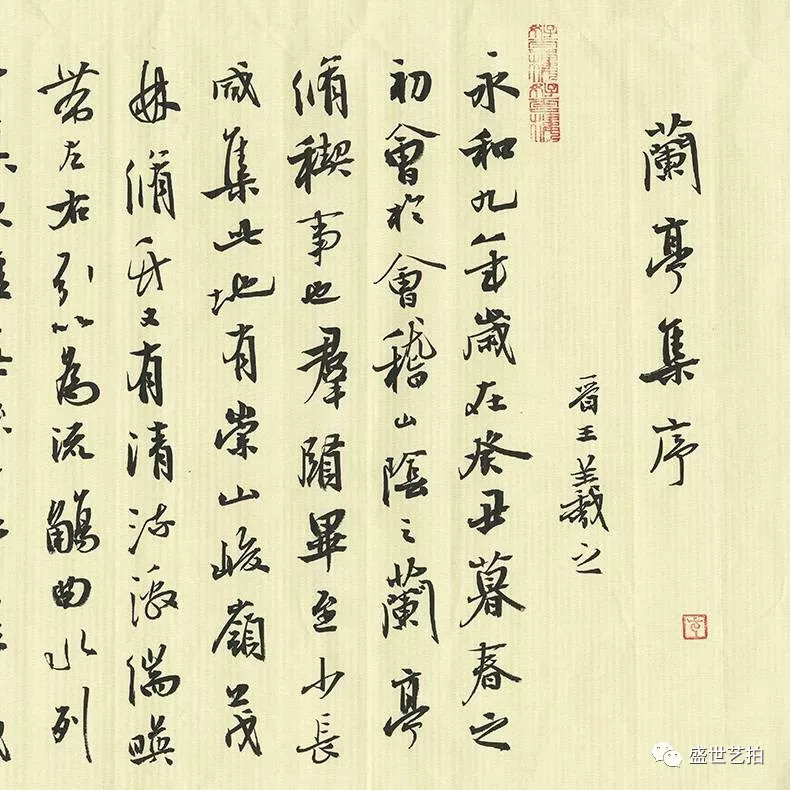 蘭亭集序
晉王羲之
永和九年歲在癸丑暮春之
初會於會稽山陰之蘭亭
脩稧事也羣賢畢至少長
咸集此地有崇山峻嶺茂
林脩竹又有清流激湍暎
帶左右引以為流觴曲水列
盛世艺拍